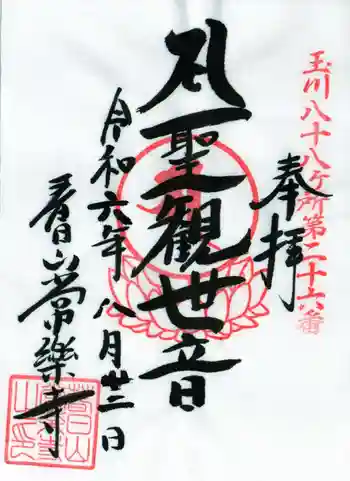 玉川八十八ヶ所第二十六番
奉拝
聖觀世音
令和六年八月日
春日山常樂寺